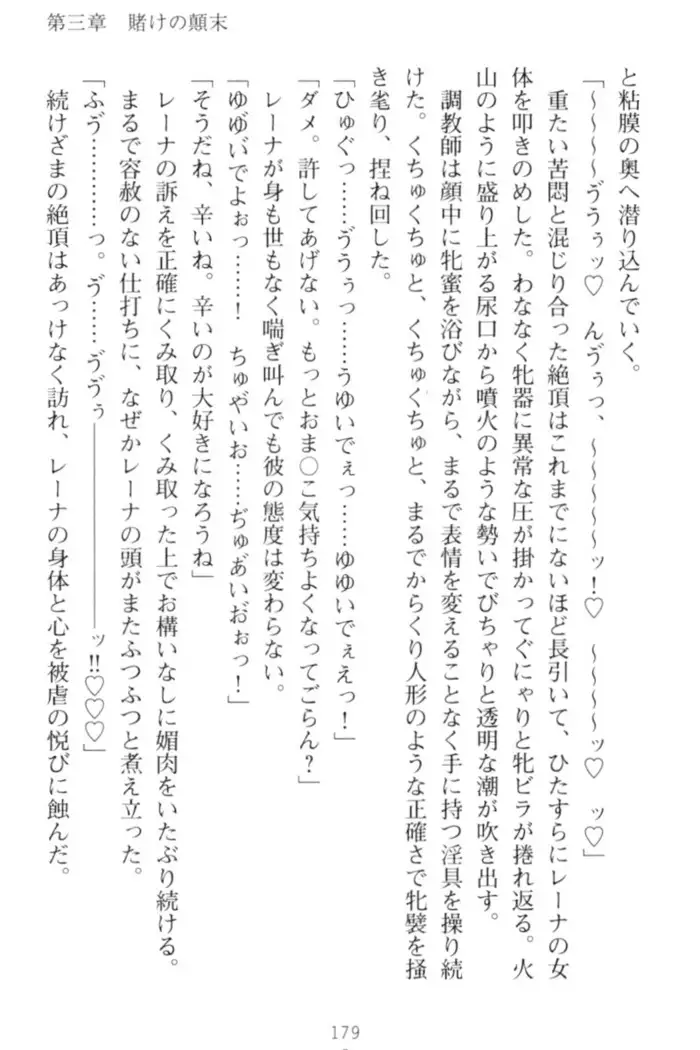 第三章　賭けの顛末
と粘膜の奥へ潜り込んでいく。
「～～～～ゔうぅッ♡　んゔぅっ、～～～～～ッ！♡　～～～～ッ♡　ッ♡」
　重たい苦悶と混じり合った絶頂はこれまでにないほど長引いて、ひたすらにレーナの女
体を叩きのめした。わななく牝器に異常な圧が掛かってぐにゃりと牝ビラが捲れ返る。火
山のように盛り上がる尿口から噴火のような勢いでびちゃりと透明な潮が吹き出す。
　調教師は顔中に牝蜜を浴びながら、まるで表情を変えることなく手に持つ淫具を操り続
けた。くちゅくちゅと、くちゅくちゅと、まるでからくり人形のような正確さで牝襞を掻
き毟り、捏ね回した。
「ひゅぐっ……ゔうぅっ……うゆいでぇっ……ゆゆいでぇえっ！」
「ダメ。許してあげない。もっとおま○こ気持ちよくなってごらん？」
　レーナが身も世もなく喘ぎ叫んでも彼の態度は変わらない。
「ゆゔいでよぉっ……！　ちゅやいお……ぢゅあ゙いぉ゙ぉっ！」
「そうだね、辛いね。辛いのが大好きになろうね」
　レーナの訴えを正確にくみ取り、くみ取った上でお構いなしに媚肉をいたぶり続ける。
　まるで容赦のない仕打ちに、なぜかレーナの頭がまたふつふつと煮え立った。
「ふゔ…………っ。ゔ……ゔゔぅ――――――ッ‼♡♡♡」
　続けざまの絶頂はあっけなく訪れ、レーナの身体と心を被虐の悦びに蝕んだ。
179